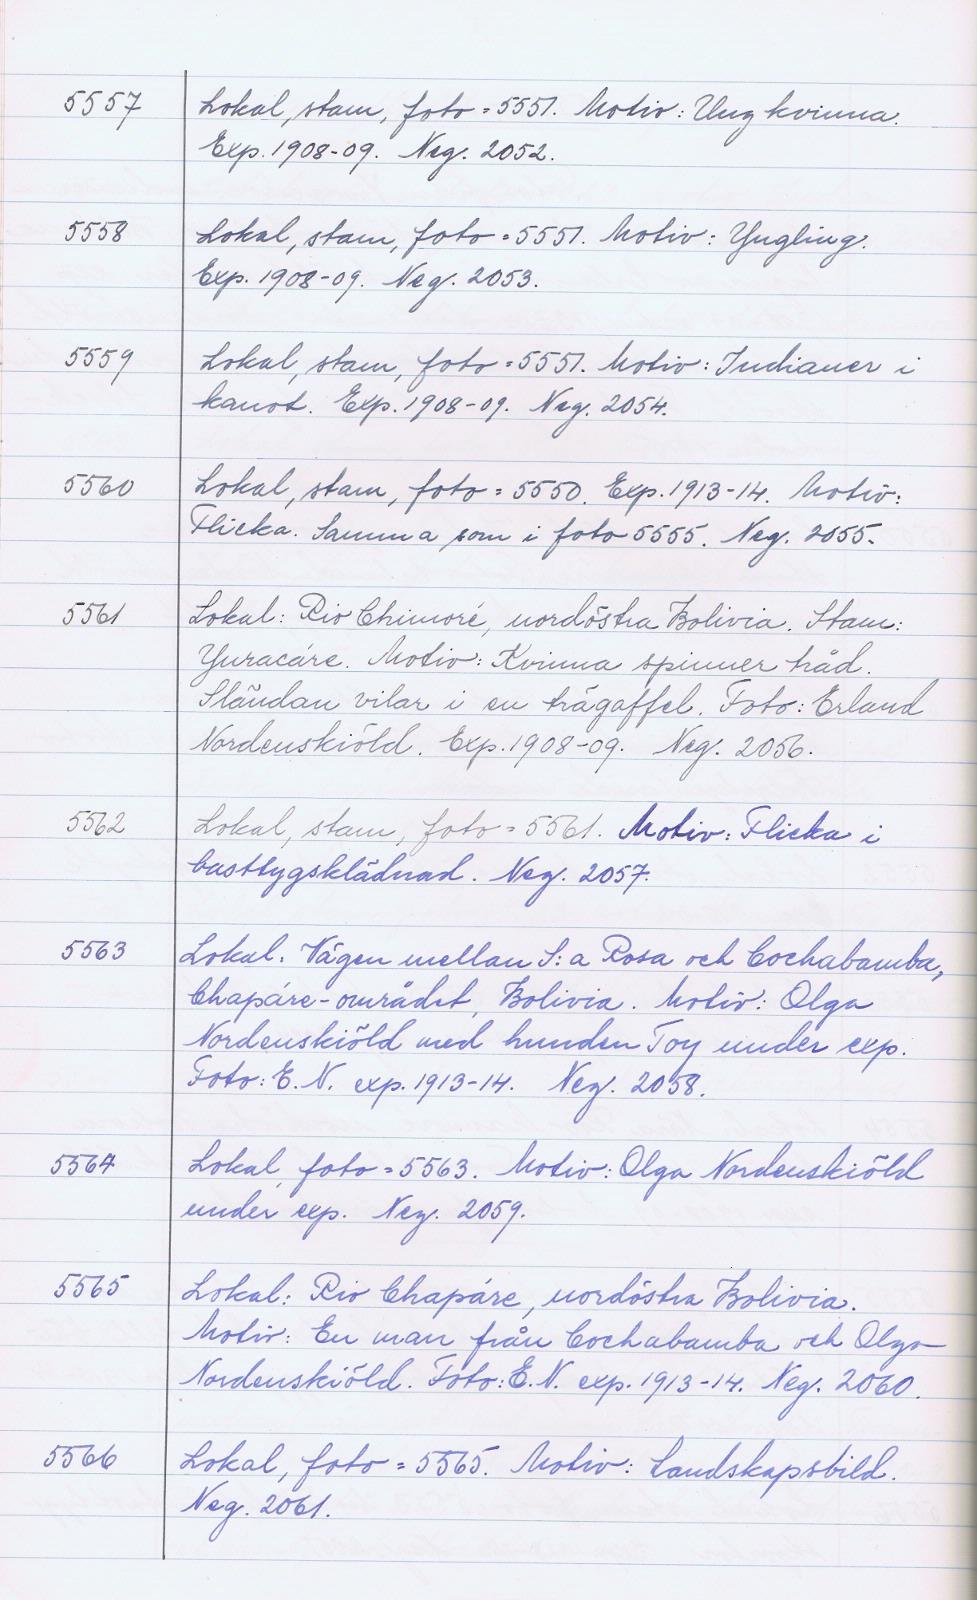 5557 Lokal, stam, foto = 5551. Motiv: Ung kvinna.
Exp. 1908-09. Neg. 2052.
5558 Lokal, stam, foto = 5551. Motiv: Yngling.
Exp. 1908-09. Neg. 2053.
5559 Lokal, stam, foto = 5551. Motiv: Indianer i
kanot. Exp. 1908-09. Neg. 2054.
5560 Lokal, stam, foto = 5550. Exp. 1913-14. Motiv:
Flicka. Samma som i foto 5555. Neg. 2055.
5561 Lokal: Rio Chimoré, nordöstra Bolivia. Stam:
Yuracáre. Motiv: Kvinna spinner tråd.
Sländan vilar i en trägaffel. Foto: Erland
Nordenskiöld. Exp. 1908-09. Neg. 2056.
5562 Lokal, stam, foto = 5561. Motiv: Flicka i
basttygsklädnad. Neg. 2057.
5563 Lokal: Vägen mellan S:a Rosa och Cochabamba,
Chapáre-området, Bolivia. Motiv: Olga
Nordenskiöld med hunden Toy under exp.
Foto: E. N. exp. 1913-14. Neg. 2058.
5564 Lokal, foto = 5563. Motiv: Olga Nordenskiöld
under exp. Neg. 2059.
5565 Lokal: Rio Chapáre, nordöstra Bolivia.
Motiv: En man från Cochabamba och Olga
Nordenskiöld. Foto: E. N. exp. 1913-14. Neg. 2060.
5566 Lokal, foto = 5565. Motiv: Landskapsbild.
Neg. 2061.